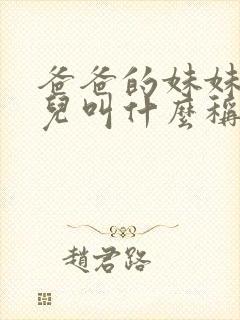 爸爸的妹妹
兒叫什麼稱
趙君路